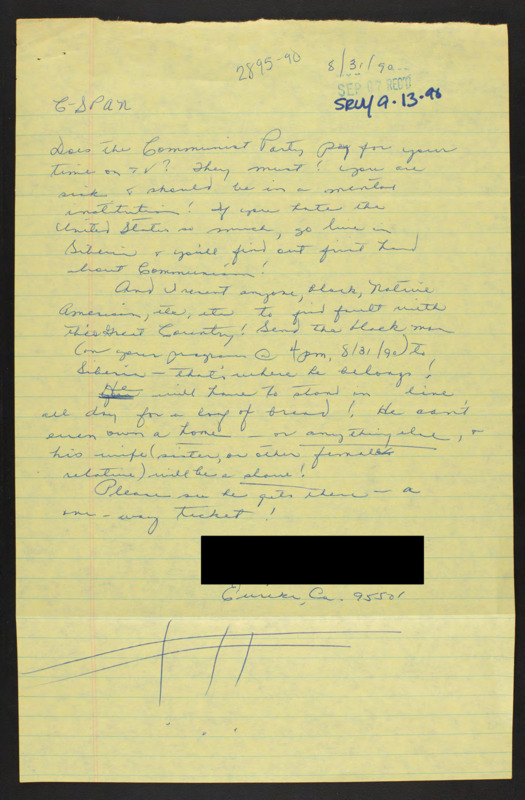 2895-90
8/31/90
SEP 07 REC'D
SRW 9·13·90
C-SPAN
Does the Communist Party pay for your
time on TV? They must! You are
sick & should be in a mental
institution! If you hate the
United States so much, go live in
Siberia & you'll find out first hand
about Communism!
And I resent anyone, black, Native
American, etc, etc to find fault with
this Great Country! Send the black man
(on your program @ 4pm, 8/31/90) to
Siberia - that's where he belongs!
He will have to stand in line
all day for a loaf of bread! He can't
even own a home - or anything else, &
his wife (sister, or other female
relative) will be a slave!
Please see he gets there - a
one-way ticket!
Eureka, Ca. 95501